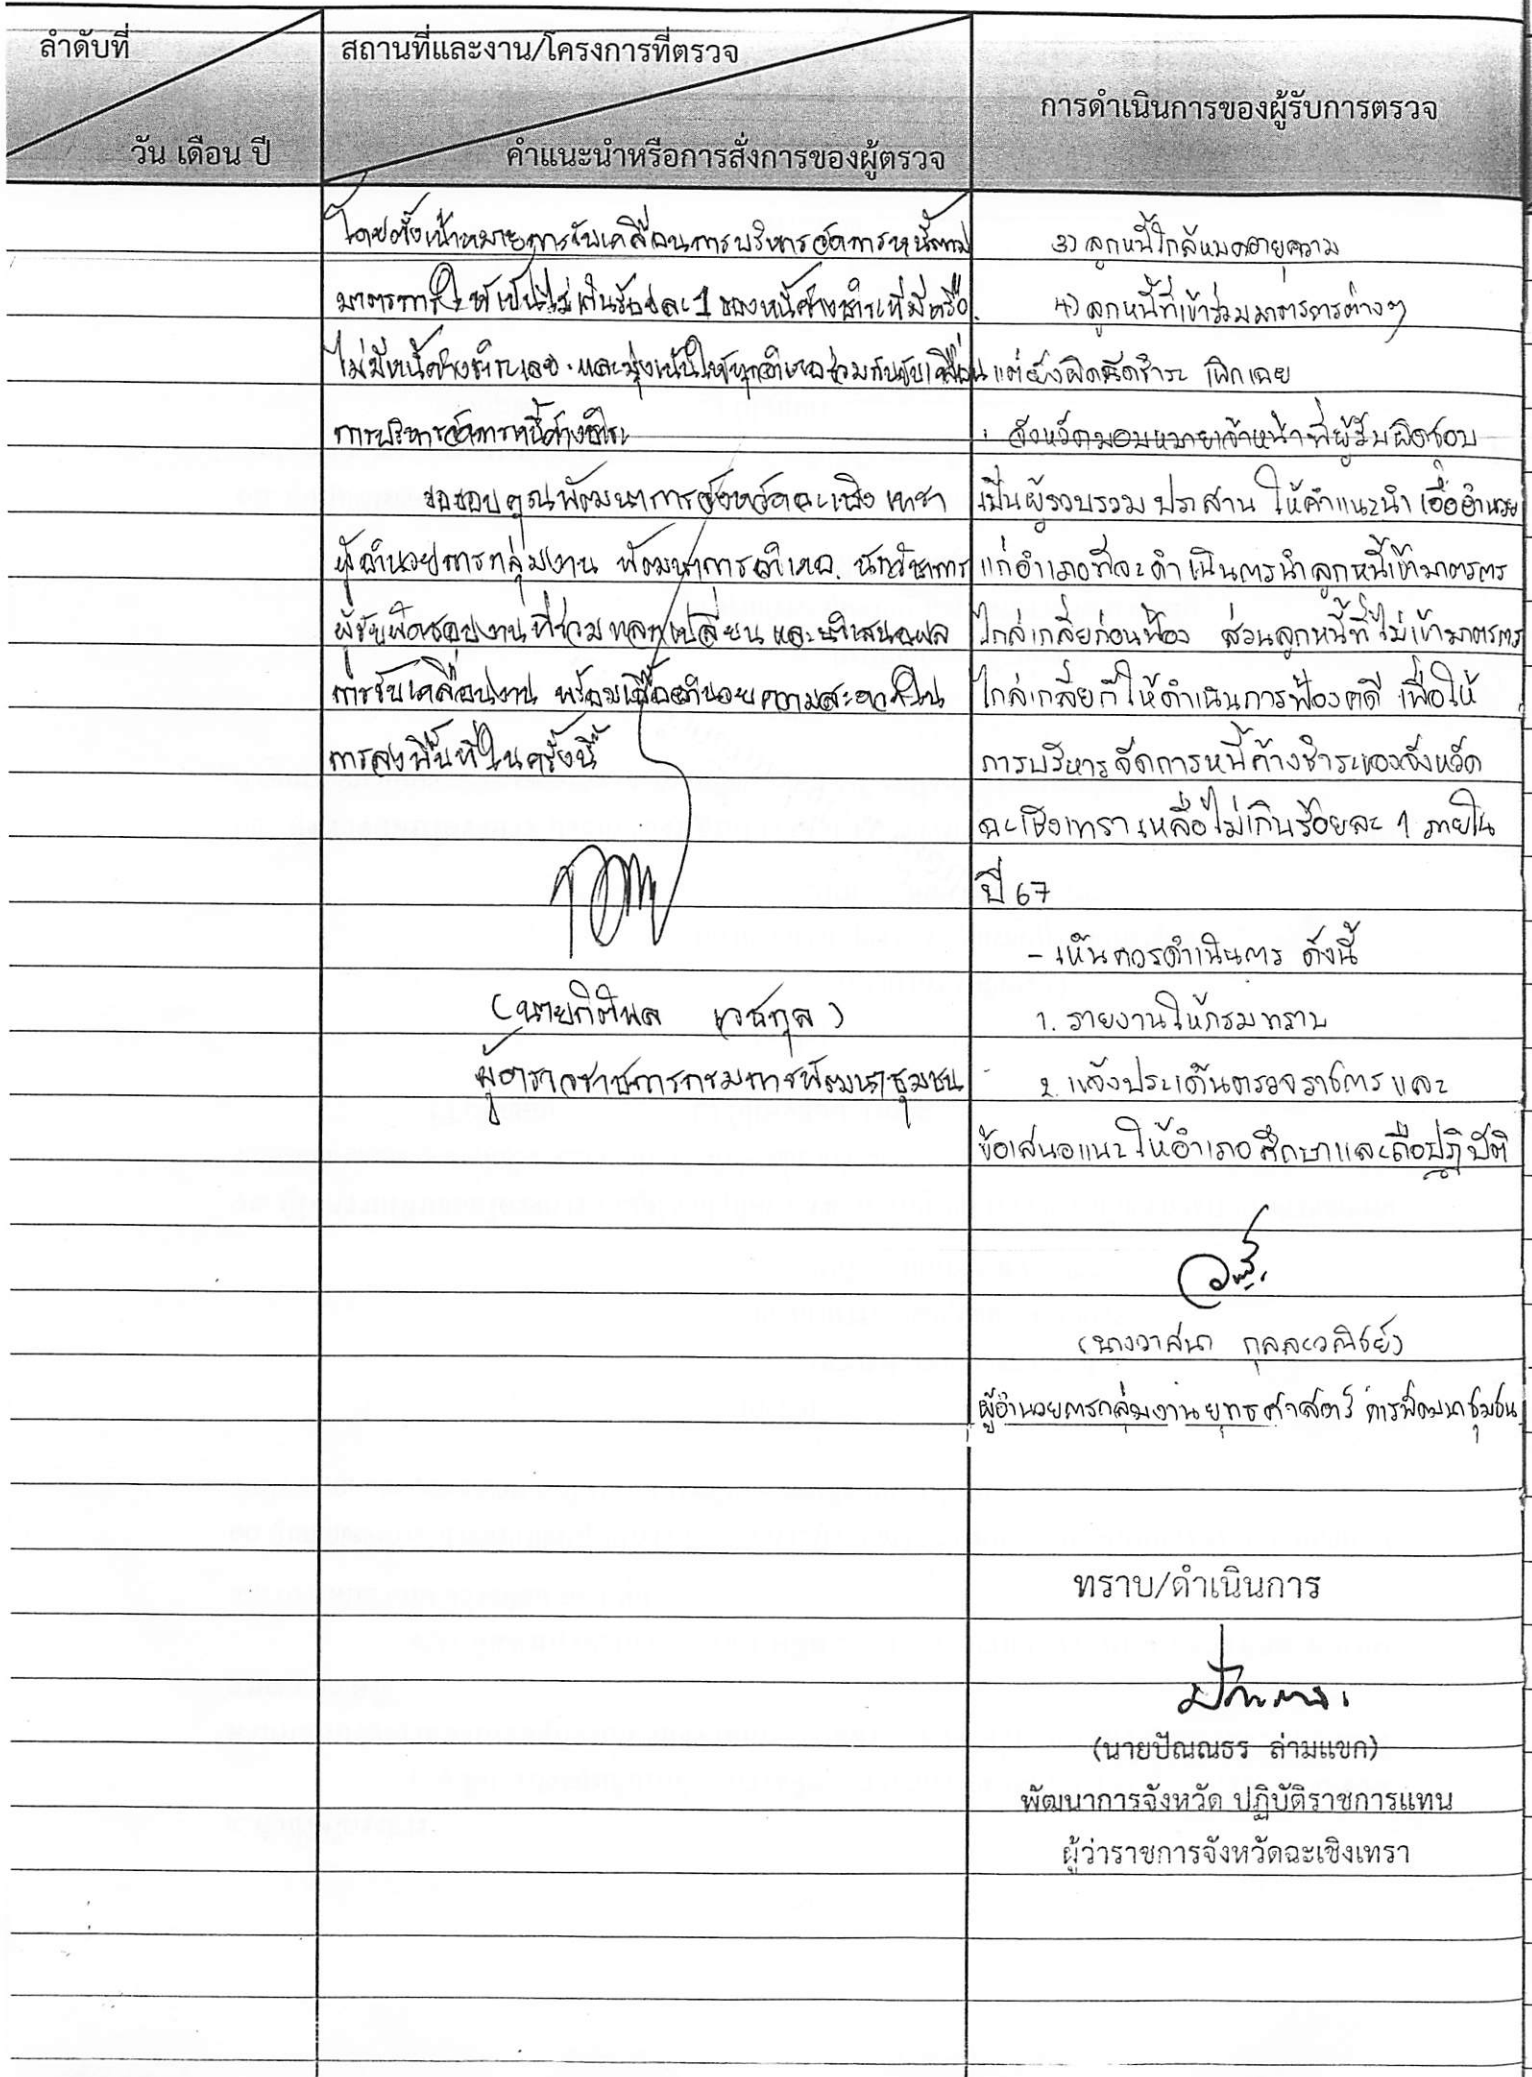 ลำดับที่
วัน เดือน ปี
สถานที่และงาน/โครงการที่ตรวจ
คำแนะนำหรือการสั่งการของผู้ตรวจ
การดำเนินการของผู้รับการตรวจ
โดยตั้งเป้าหมายการขับเคลื่อนการบริหารจัดการหนี้ตาม
มาตรการให้เป็นไม่เกินร้อยละ 1 ของหนี้ค้างชำระที่มีหรือ
ไม่มีหนี้ค้างชำระเลย และมุ่งเน้นให้ทุกอำเภอร่วมกันขับเคลื่อน
การบริหารจัดการหนี้ค้างชำระ
ขอขอบคุณพัฒนาการจังหวัดฉะเชิงเทรา
ผู้อำนวยการกลุ่มงาน พัฒนาการอำเภอ นักวิชาการ
ผู้รับผิดชอบงาน ที่ร่วมแลกเปลี่ยน และนำเสนอผล
การขับเคลื่อนงาน พร้อมเอื้ออำนวยความสะดวกใน
การลงพื้นที่ในครั้งนี้
(นายกิติพล เวชกุล)
ผู้ตรวจราชการกรมการพัฒนาชุมชน
3) ลูกหนี้ใกล้หมดอายุความ
4) ลูกหนี้ที่เข้าร่วมมาตรการต่างๆ
แต่ยังผิดนัดชำระ เพิกเฉย
จังหวัดมอบหมายเจ้าหน้าที่ผู้รับผิดชอบ
เป็นผู้รวบรวม ประสาน ให้คำแนะนำ เอื้ออำนวย
แก่อำเภอที่จะดำเนินการนำลูกหนี้เข้ามาตรการ
ไกล่เกลี่ยก่อนฟ้อง ส่วนลูกหนี้ที่ไม่เข้ามาตรการ
ไกล่เกลี่ยก็ให้ดำเนินการฟ้องคดี เพื่อให้
การบริหารจัดการหนี้ค้างชำระของจังหวัด
ฉะเชิงเทราเหลือไม่เกินร้อยละ 1 ภายใน
ปี 67
- เห็นควรดำเนินการ ดังนี้
1. รายงานให้กรมทราบ
2. แจ้งประเด็นตรวจราชการ และ
ข้อเสนอแนะให้อำเภอศึกษาและถือปฏิบัติ
(นางวาสนา กุลละวณิชย์)
ผู้อำนวยการกลุ่มงานยุทธศาสตร์การพัฒนาชุมชน
ทราบ/ดำเนินการ
(นายปัณณธร ล่ามแขก)
พัฒนาการจังหวัด ปฏิบัติราชการแทน
ผู้ว่าราชการจังหวัดฉะเชิงเทรา